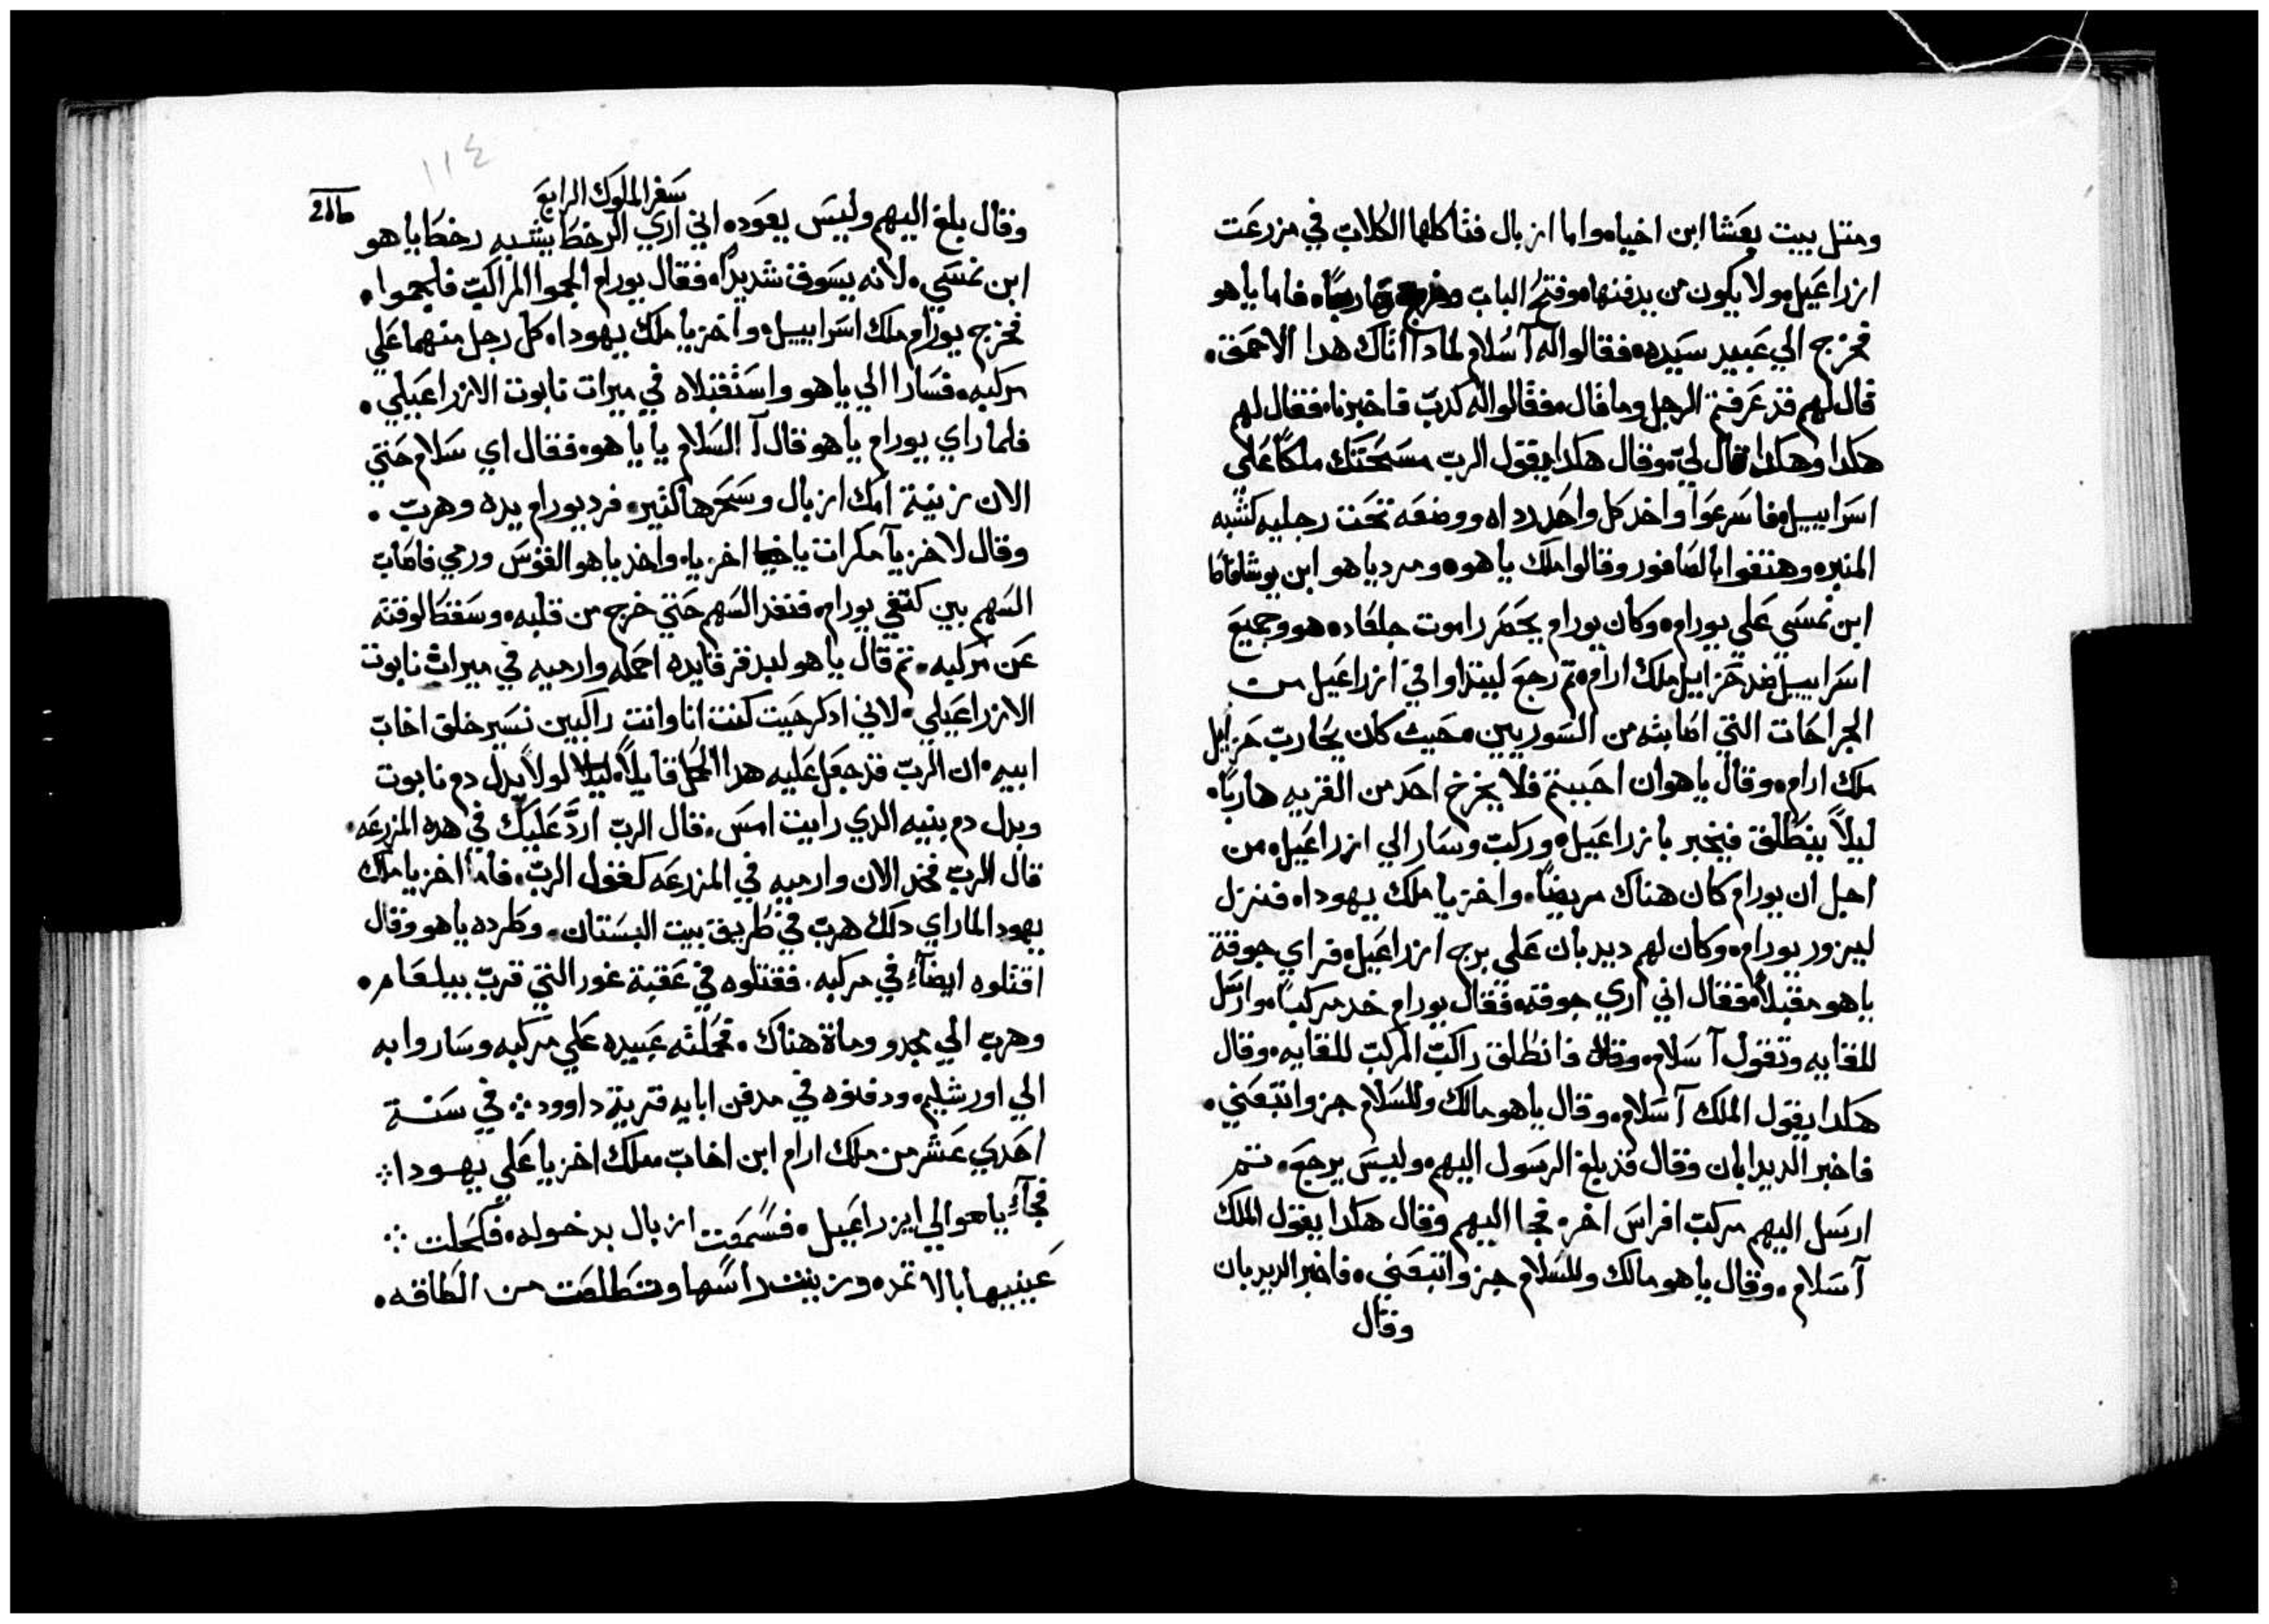 ومتل بيت بعشا ابن اخيا، واما ازبال فتاكلها الكلاب في مزرعت
ازراعيل، ولا يكون من يدفنها، وفتح الباب هاربًا، فاما ياهو
فخرج الي عبيد سيده، فقالوا له آ سلام لمادا اتاك هدا الاحمق.
قال لهم قد عرفتم الرجل وما قال، فقالوا له كدب فاخبرنا، فقال لهم
هكدا وهكدا قال لي، وقال هكدا يقول الرب مسحتك ملكًا علي
اسراييل، فاسرعوا واخد كل واحد رداه ووضعه تحت رجليه كشبه
المنبر، وهتفوا بالصافور وقالوا ملك ياهو، ومرد ياهو ابن يوشافاط
ابن نمسي علي يورام، وكان يورام يحضر راموت جلعاد، هو وجميع
اسراييل ضد حزاييل ملك ارام، تم رجع ليتداوا في ازراعيل من
الجراحات التي اصابته من السوريين، حيث كان يحارب حزاييل
ملك ارام، وقال ياهو ان احببتم فلا يخرج احد من القريه هاربًا،
ليلاً ينطلق فيخبر بازراعيل، وركب وسار الي ازراعيل، من
اجل ان يورام كان هناك مريضًا، واخزيا ملك يهودا، فنزل
ليزور يورام، وكان لهم ديدبان علي برج ازراعيل، فراي جوقة
ياهو مقبلاً، فقال اني اري جوقه، فقال يورام خد مركبًا، وارسل
للقايه وتقول آ سلام، فانطلق راكب المركب للقايه، وقال
هكدا يقول الملك آ سلام، وقال ياهو مالك وللسلام جز واتبعني.
فاخبر الديدابان وقال قد بلغ الرسول اليهم، وليس يرجع، تم
ارسل اليهم مركب افراس اخر، فجا اليهم وقال هكدا يقول الملك
آ سلام، وقال ياهو مالك وللسلام جز واتبعني، فاخبر الديدبان
وقال
١١٤
سفر الملوك الرابع
وقال بلغ اليهم وليس يعود، اني اري الرخط يشبه رخط ياهو
ابن نمسي، لانه يسوق شديدًا، فقال يورام الجموا المراكب فالجموا.
فخرج يورام ملك اسراييل، واخزيا ملك يهودا، كل رجل منهما علي
مركبه، فسارا الي ياهو واستقبلاه في ميرات نابوت الازراعيلي.
فلما راي يورام ياهو قال آ السلام يا ياهو، فقال اي سلام حتي
الان زنية امك ازبال وسحرها كتير، فرد يورام يده وهرب.
وقال لاخزيا مكرات يا اخزيا، واخد ياهو القوس ورمي فاصاب
السهم بين كتفي يورام، فنفد السهم حتي خرج من قلبه، وسقط لوقته
عن مركبه، تم قال ياهو لبدقر قايده احمله وارميه في ميراث نابوت
الازراعيلي، لاني ادكر حيت كنت انا وانت راكبين نسير خلق اخاب
ابيه، ان الرب قد جعل عليه هدا الحمل قايلاً، لولا بدل دم نابوت
وبدل دم بنيه الدي رايت امس، قال الرب اردّ عليك في هده المزرعه،
قال الرب فخد الان وارميه في المزرعه كقول الرب، فاما اخزيا ملك
يهودا لما راي دلك هرب في طريق بيت البستان، وطرده ياهو وقال
اقتلوه ايضآءً في مركبه، فقتلوه في عقبة غور التي قرب بيلعام.
وهرب الي مجدو وماة هناك، فحملته عبيده علي مركبه وساروا به
الي اورشليم، ودفنوه في مدفن ابايه قرية داوود ܀ في سنة
احدي عشر من ملك ارام ابن اخاب ملك اخزيا علي يهودا ܀
فجآءَ ياهو الي ايزراعيل، فسمعت ازبال بدخوله، فكحلت ܀
عينيها بالاتمد، وزينت راسها وتطلعت من الطاقه.